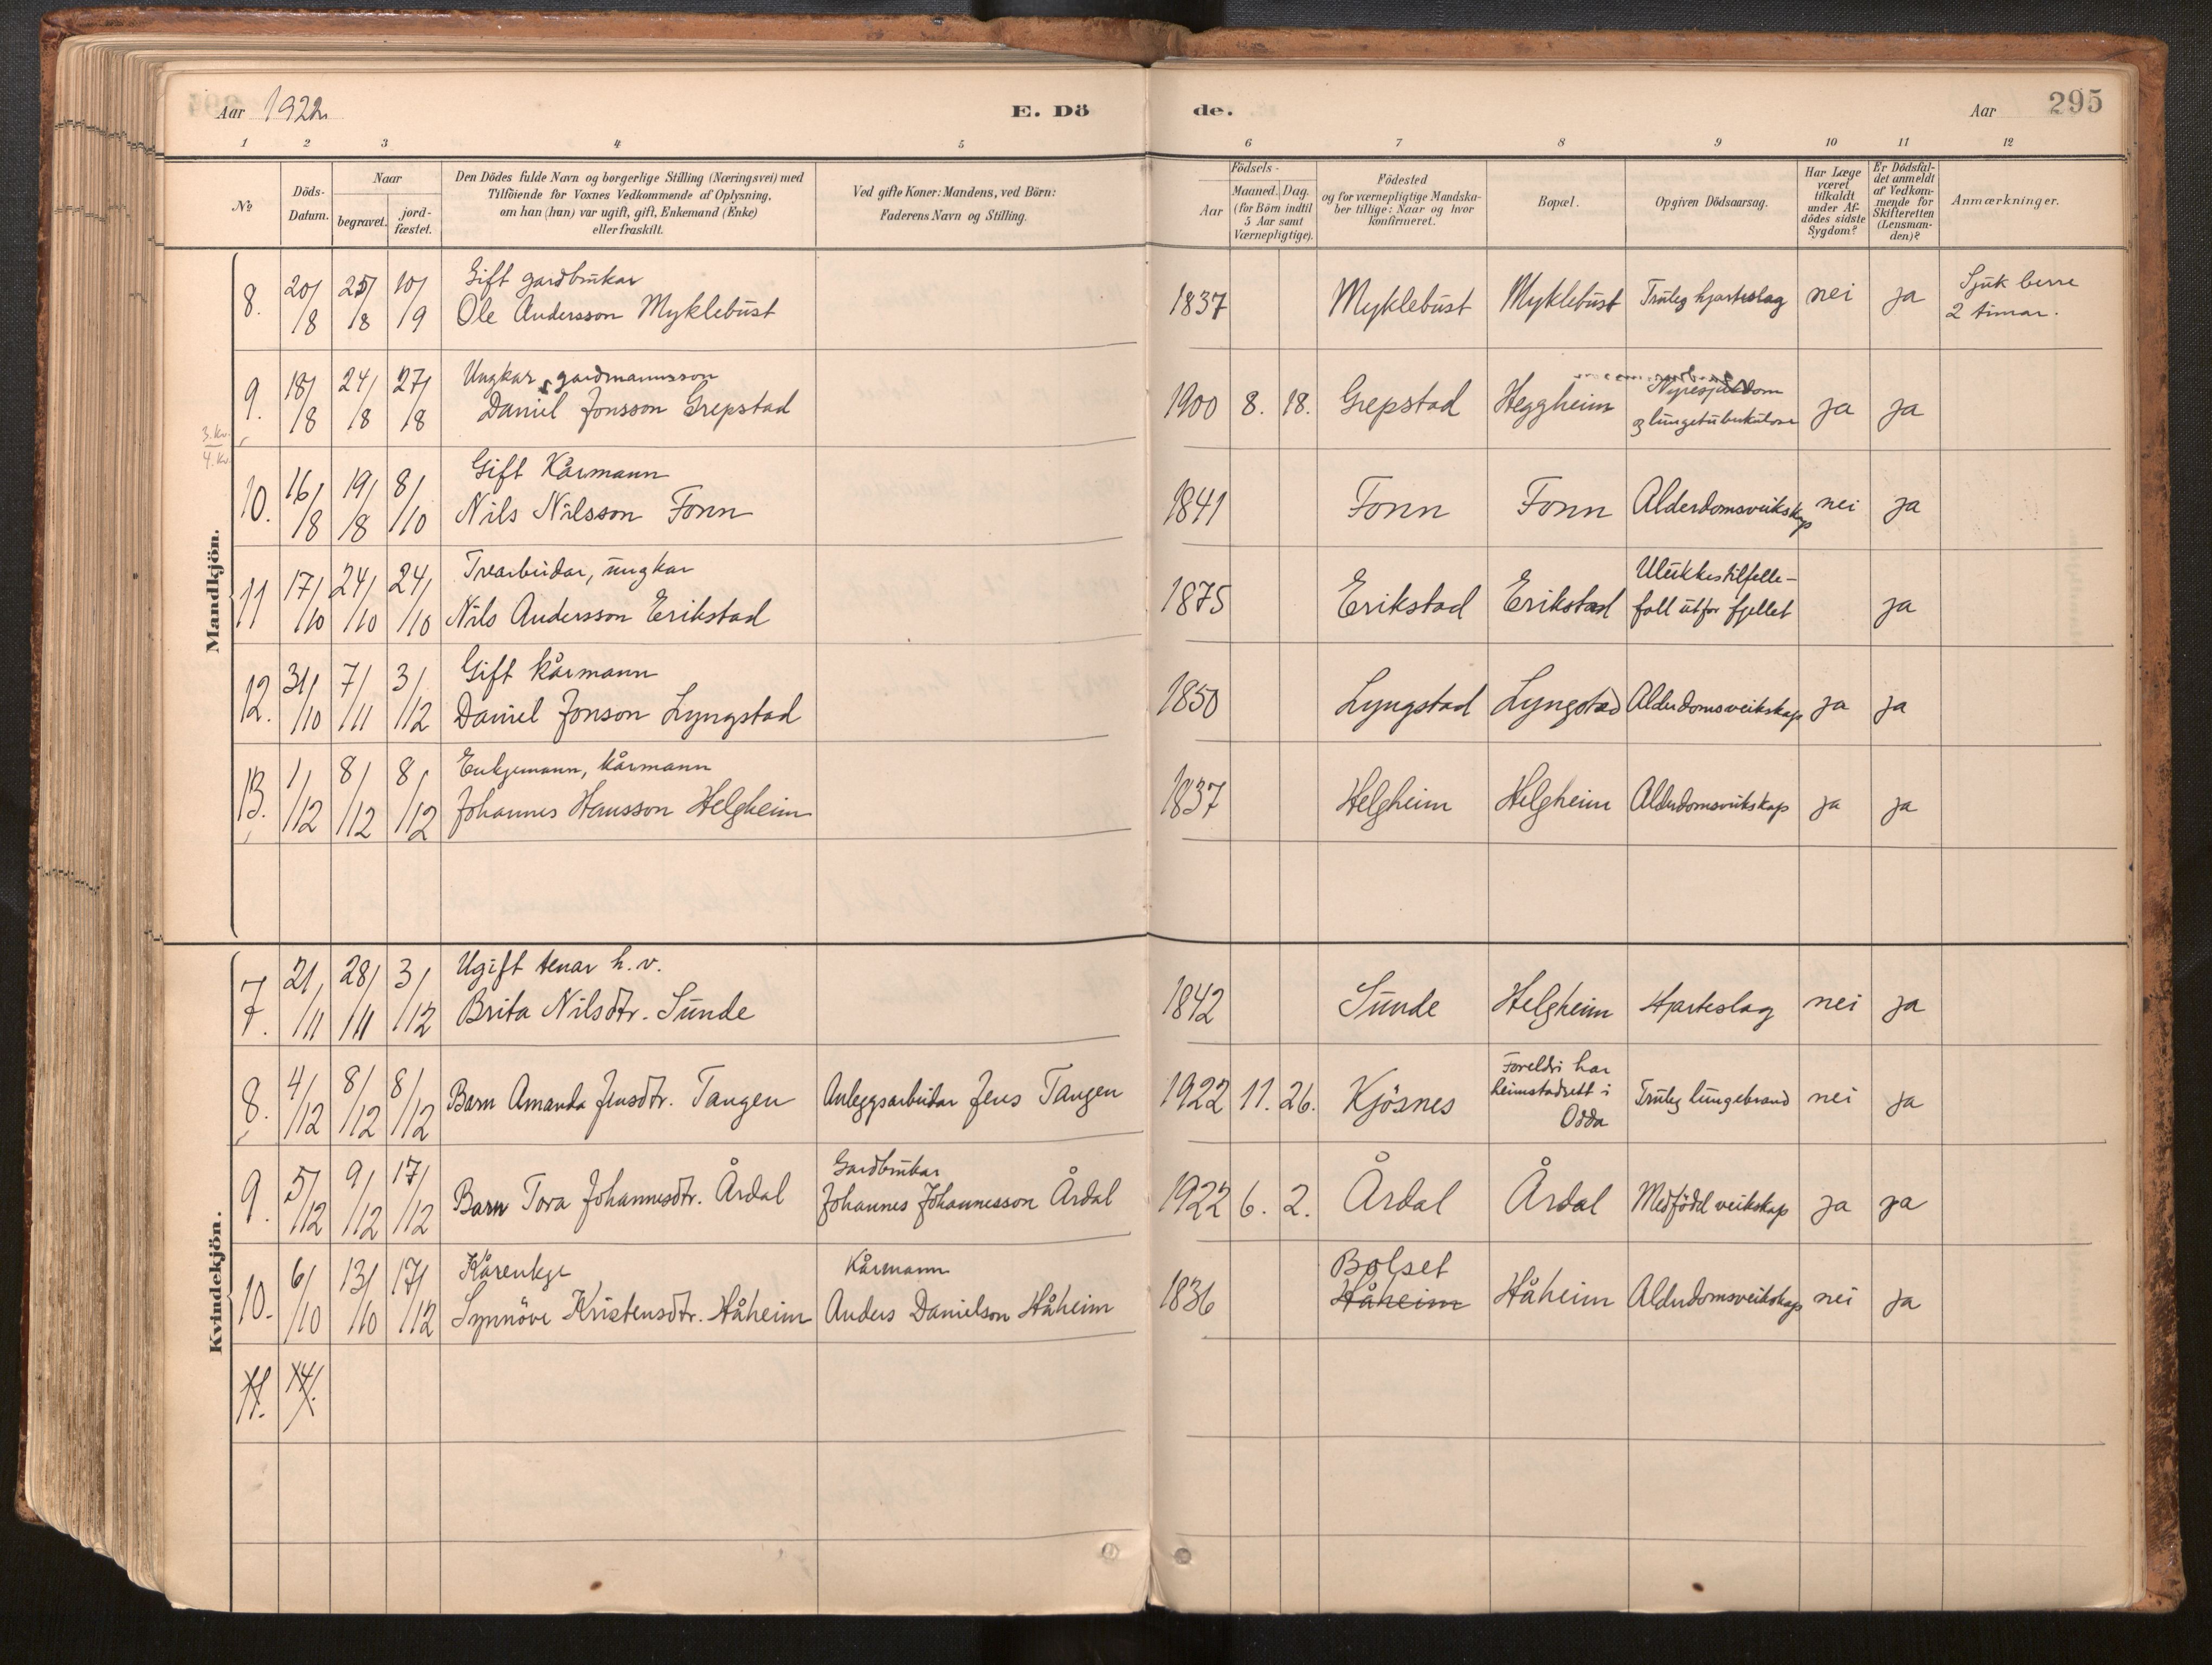 Aar 1922
E. Dö
de.
Aar 295
1 2 3 4 5 6 7 8 9 10 11 12
№
Döds-
Datum.
Naar
begravet.
jord-
fæstet.
Den Dödes fulde Navn og borgerlige Stilling (Næringsvei) med
Tilföiende for Voxnes Vedkommende af Oplysning,
om han (hun) var ugift, gift, Enkemand (Enke)
eller fraskilt.
Ved gifte Koner: Mandens, ved Börn:
Faderens Navn og Stilling.
Födsels-
Aar
Maaned. Dag.
(for Börn indtil
5 Aar samt
Værnepligtige).
Födested
og for værnepligtige Mandska-
ber tillige: Naar og hvor
konfirmeret.
Bopæl.
Opgiven Dödsaarsag.
Har Læge
været
tilkaldt
under Af-
dödes sidste
Sygdom?
Er Dödsfal-
det anmeldt
af Vedkom-
mende for
Skifteretten
(Lensman-
den)?
Anmærkninger.
Mandkjön.
8. 20/8 25/8 10/9 Gift gardbrukar
Ole Andersson Myklebust 1837 Myklebust Myklebust Truleg hjarteslag nei ja Sjuk berre
2 timar.
9. 18/8 24/8 27/8 Ungkar, gardmannsson
Daniel Jonsson Grepstad 1900 8. 18. Grepstad Heggheim Nyresjukdom
og lungetuberkulose ja ja
3. kv.
4. kv.
10. 16/8 19/8 8/10 Gift Kårmann
Nils Nilsson Fonn 1841 Fonn Fonn Alderdomsveikskap nei ja
11 17/10 24/10 24/10 Trearbeidar, ungkar
Nils Andersson Erikstad 1875 Erikstad Erikstad Ulukkestilfelle -
fall utfor fjellet ja
12. 31/10 7/11 3/12 Gift kårmann
Daniel Jonson Lyngstad 1850 Lyngstad Lyngstad Alderdomsveikskap ja ja
13. 1/12 8/12 8/12 Enkjemann, kårmann
Johannes Hansson Helgheim 1837 Helgheim Helgheim Alderdomsveikskap ja ja
Kvindekjön.
7. 21/11 28/11 3/12 Ugift tenar h. v.
Brita Nilsdtr. Sunde 1842 Sunde Helgheim Hjarteslag nei ja
8. 4/12 8/12 8/12 Barn Amanda Jensdtr. Tangen Anleggsarbeidar Jens Tangen 1922 11. 26. Kjösnes Foreldri har
heimstadrett i
Odda Truleg lungebrand nei ja
9. 5/12 9/12 17/12 Barn Tora Johannesdtr. Årdal Gardbrukar
Johannes Johannesson Årdal 1922 6. 2. Årdal Årdal Medfödd veikskap ja ja
10. 6/10 13/10 17/12 Kårenkje
Synnöve Kristensdtr. Håheim Kårmann
Anders Danielson Håheim 1836 Bolset
Håheim Håheim Alderdomsveikskap nei ja
11. 14/